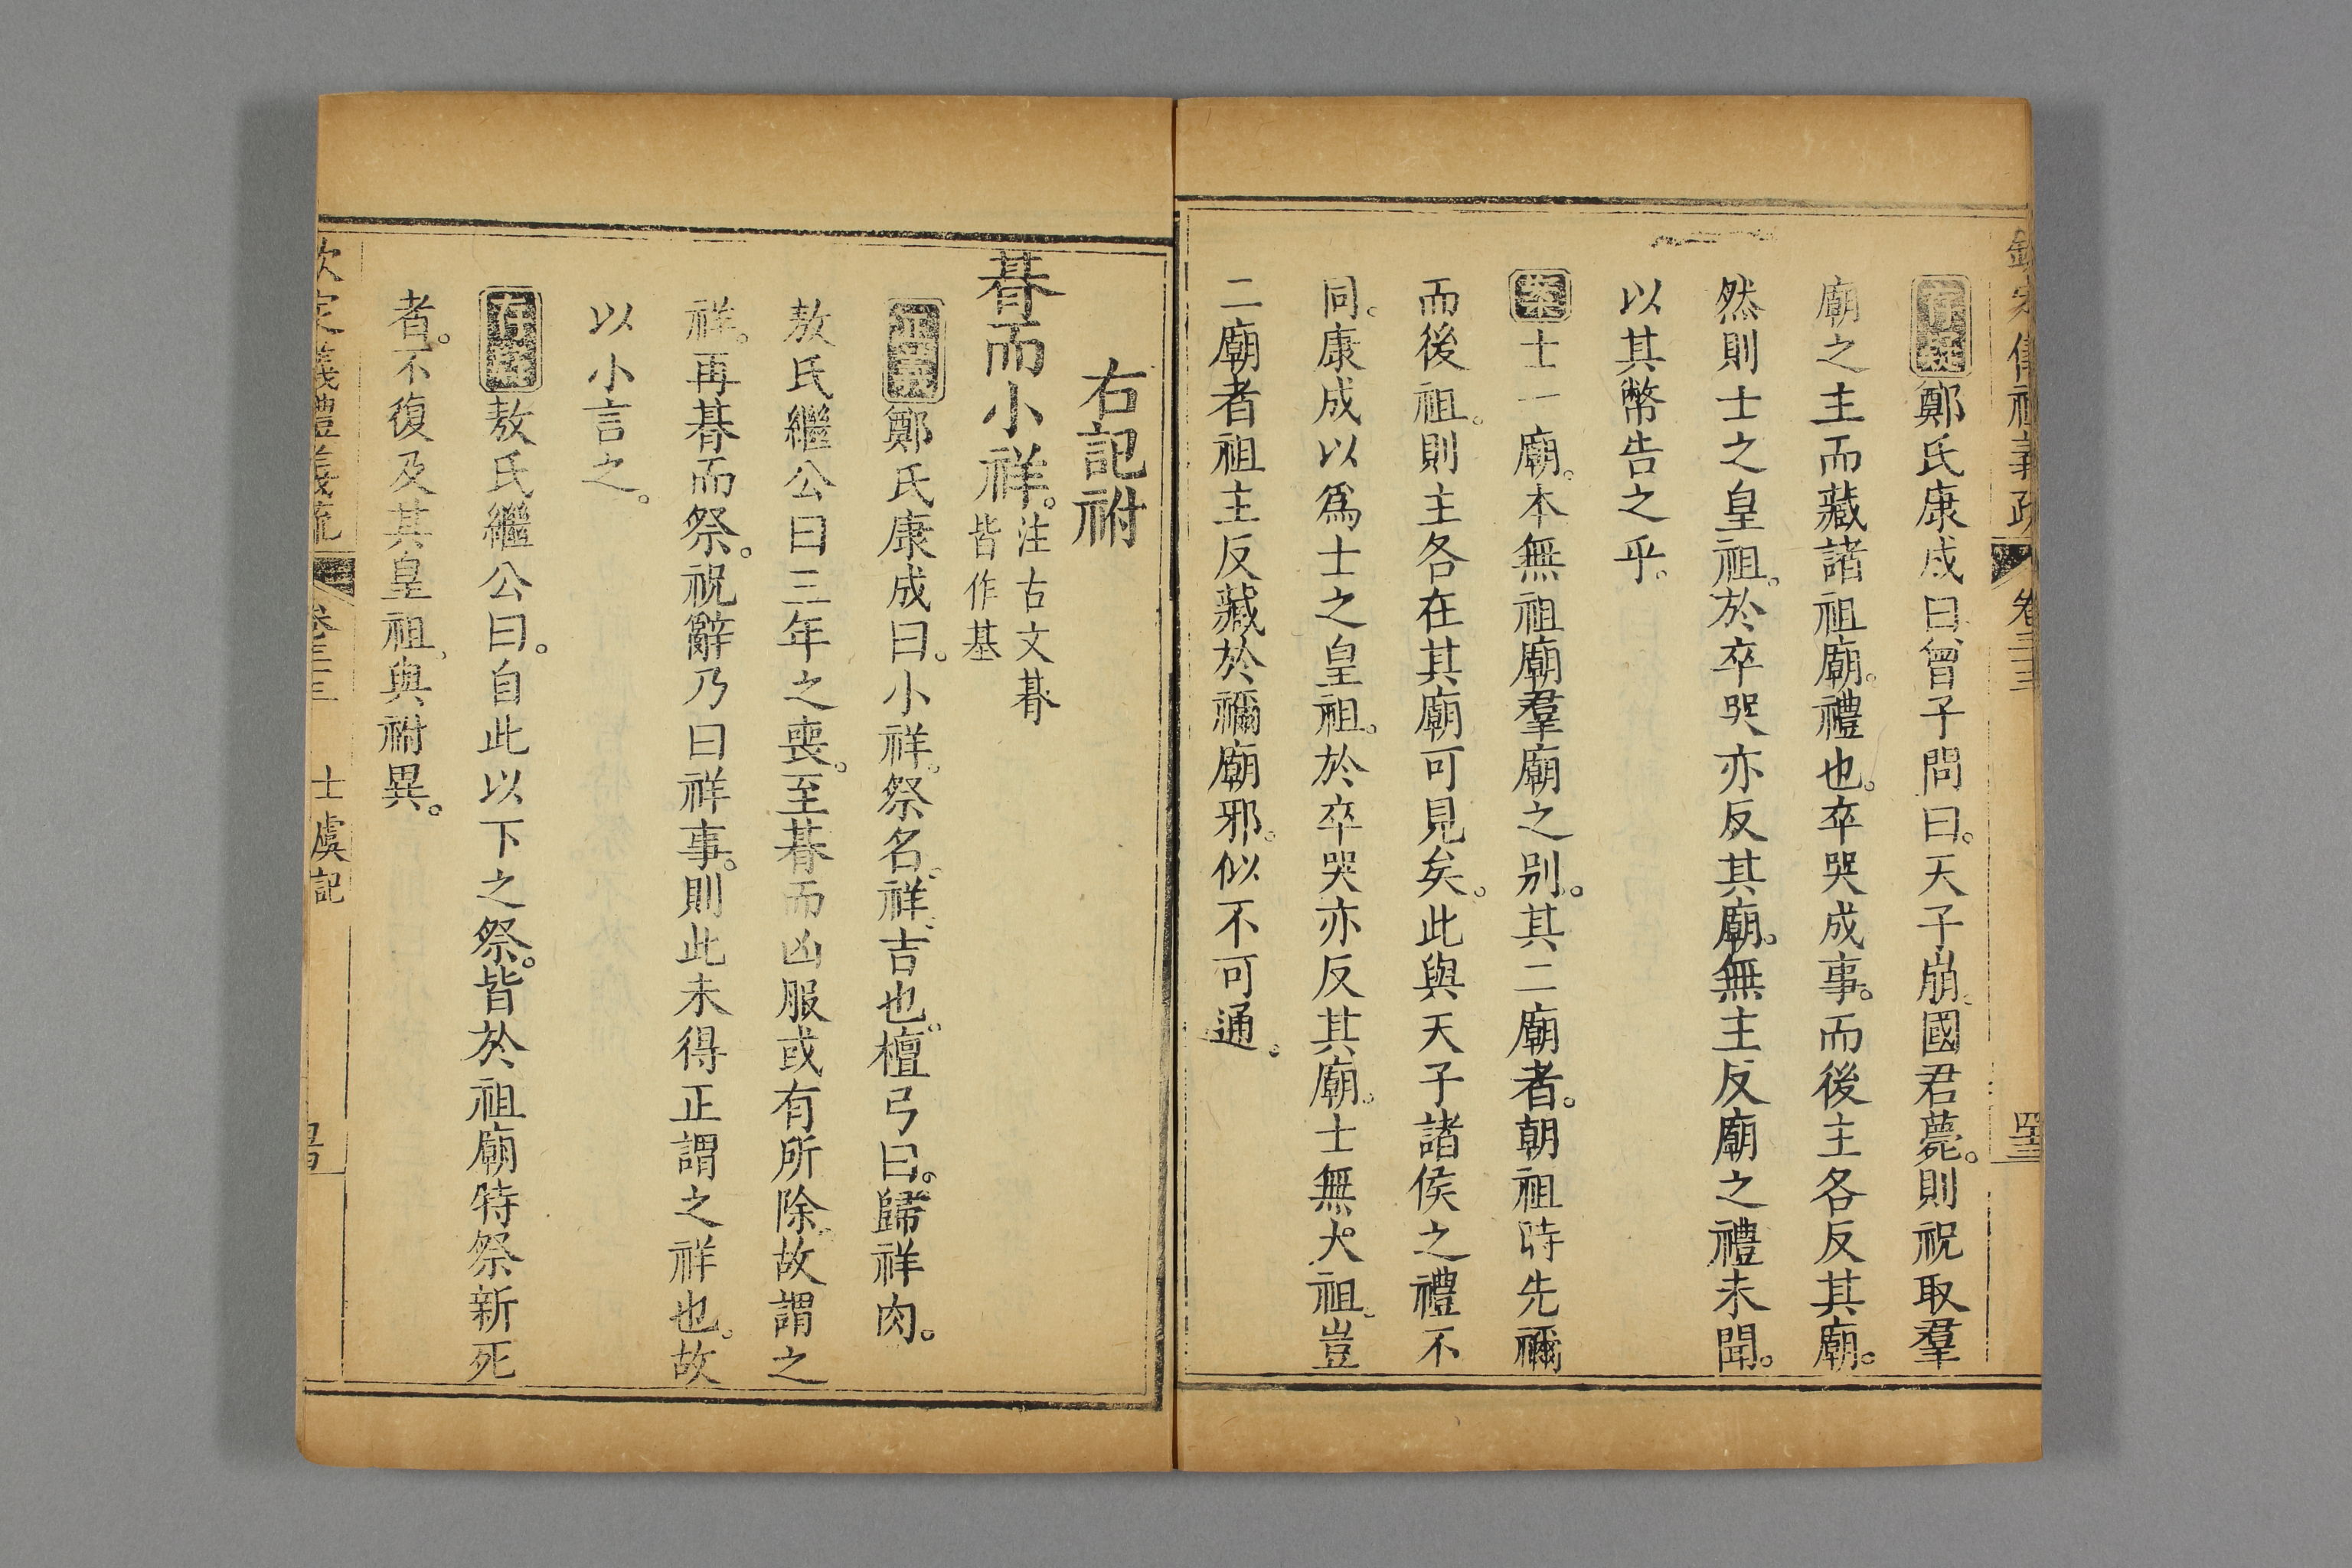 欽定儀禮義疏 卷三十三
存疑鄭氏康成曰曾子問曰。天子崩。國君薨。則祝取羣
廟之主而藏諸祖廟。禮也。卒哭成事。而後主各反其廟。
然則士之皇祖。於卒哭亦反其廟。無主反廟之禮未聞。
以其幣告之乎。
案士一廟。本無祖廟羣廟之别。其二廟者。朝祖時先禰
而後祖。則主各在其廟可見矣。此與天子諸侯之禮不
同。康成以爲士之皇祖。於卒哭亦反其廟。士無大祖。豈
二廟者祖主反藏於禰廟邪。似不可通。
右記祔
朞而小祥。注古文朞
皆作基
正義鄭氏康成曰。小祥。祭名。祥。吉也。檀弓曰。歸祥肉。
敖氏繼公曰三年之喪。至朞而凶服或有所除。故謂之
祥。再朞而祭。祝辭乃曰祥事。則此未得正謂之祥也。故
以小言之。
存疑敖氏繼公曰。自此以下之祭。皆於祖廟特祭新死
者。不復及其皇祖。與祔異。
欽定義禮義疏 卷三十三 士虞記